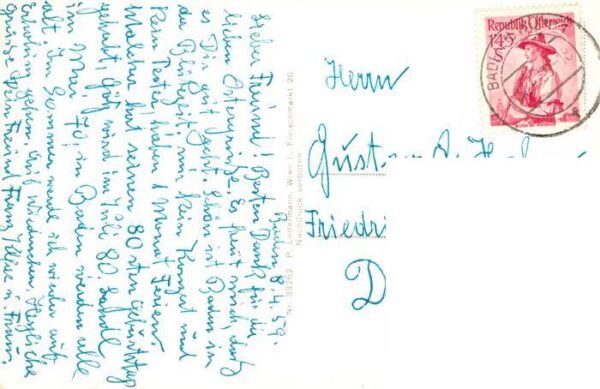 Baden 8.4.59.
Lieber Freund! Besten Dank für die
lieben Ostergrüsse. Es freut mich, dass
es Dir gut geht. Schön ist Baden in
der Blütezeit, nur kein Konzert und
kein Teater, haben 1 Monat Ferien.
Walcher hat seinen 80sten Geburtstag
gehabt, wird im Juli 80. Sandl
im Mai 70, in Baden werden alle
alt. Im Sommer werde ich wieder auf
Erholung gehen. Auf Wiedersehen. Herzliche
Grüsse Dein Freund Franz u. Frau.
Nr. 33262 P. Ledermann, Wien I., Fleischmarkt 20
Nachdruck verboten
Herrn
Friedri
D
Republik Österreich
1.45
S
BAD